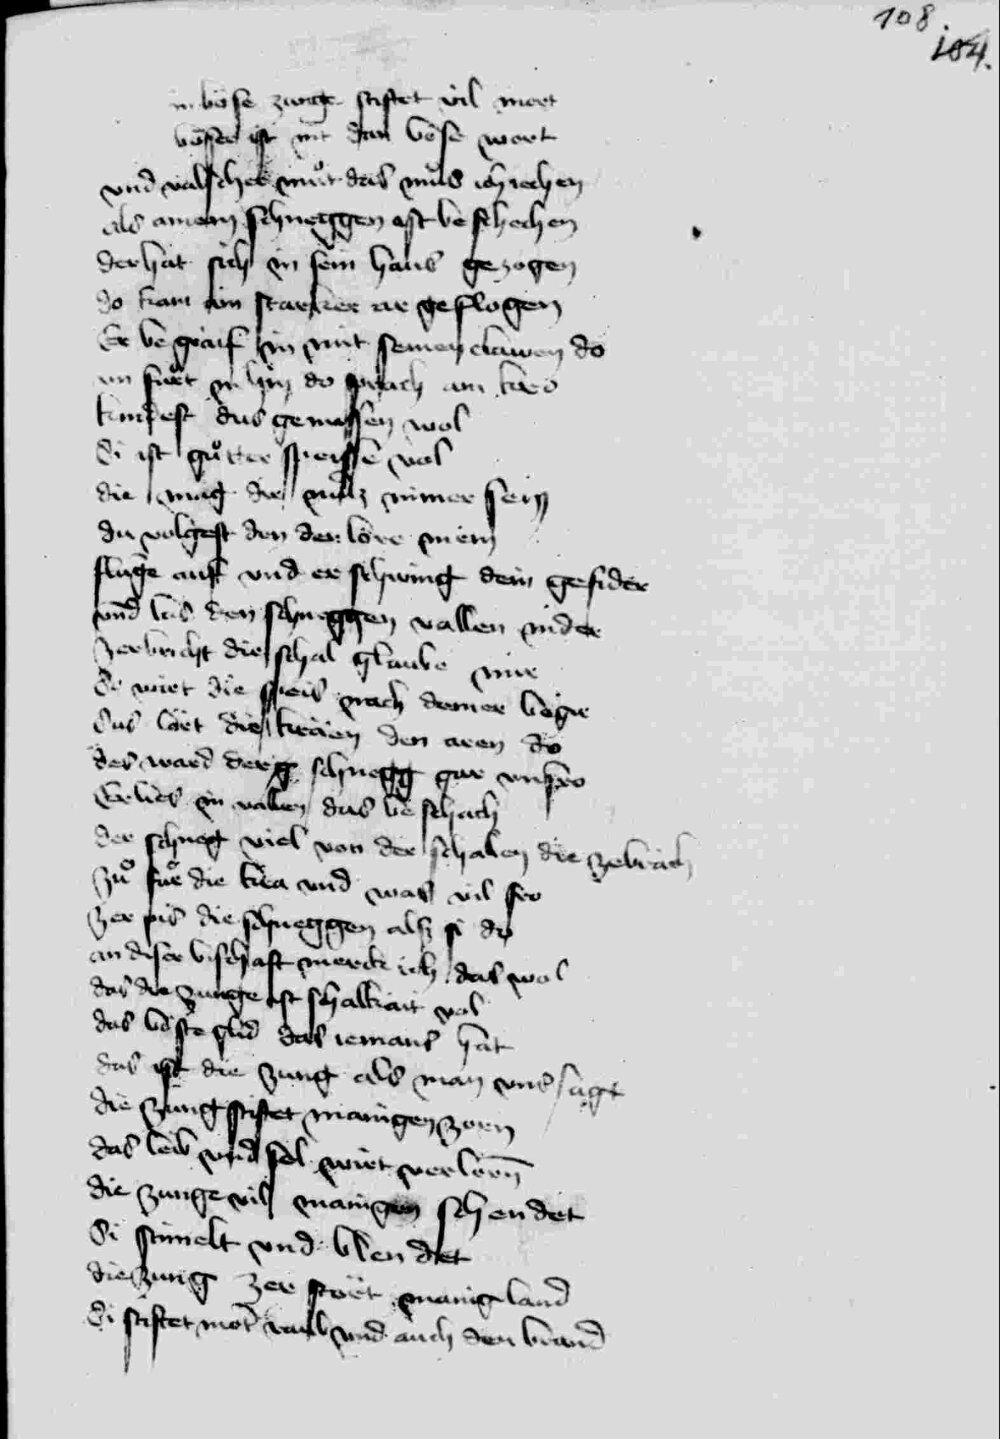 108
104.
in böse zunge stiftet vil mort
böser ist nit dan böse wort
vnd valscher můt das můs ich iechen
als ainem schneggen ist beschechen
der hat sich in sein haus gezogen
do kam ain starker ar geflogen
Er begraif in mit seinen clawen do
vn fůrt in hin do sprach ain kro
kündest dus gemassen wol
Si ist gůtter speisse vol
die mag dir nütz nimer sein
du volgest den der lere mein
fluge auf vnd erschwing dein gefider
vnd las den schneggen vallen nider
zerbricht die schal glaube mir
So wirt die speis nach deiner begir
Sus lört die kräien den aren do
des ward der schnegg gar vnfro
Er lies in vallen das beschach
der schneg viel von der schalen die zebrach
zů fůr die kra vnd was vil fro
zer pis die schneggen als si do
an diser bischaft merck ich das wol
das die zunge ist schalkait vol
das böste glid das iemans hat
das ist die zung als man vns sagt
die zung stiftet mangen zorn
das leib vnd sel wirt verlorn
die zunge vil mangen schendet
Si stimelt vnd blendet
die zung zerstört manig land
Si stiftet mort raub vnd auch den brand